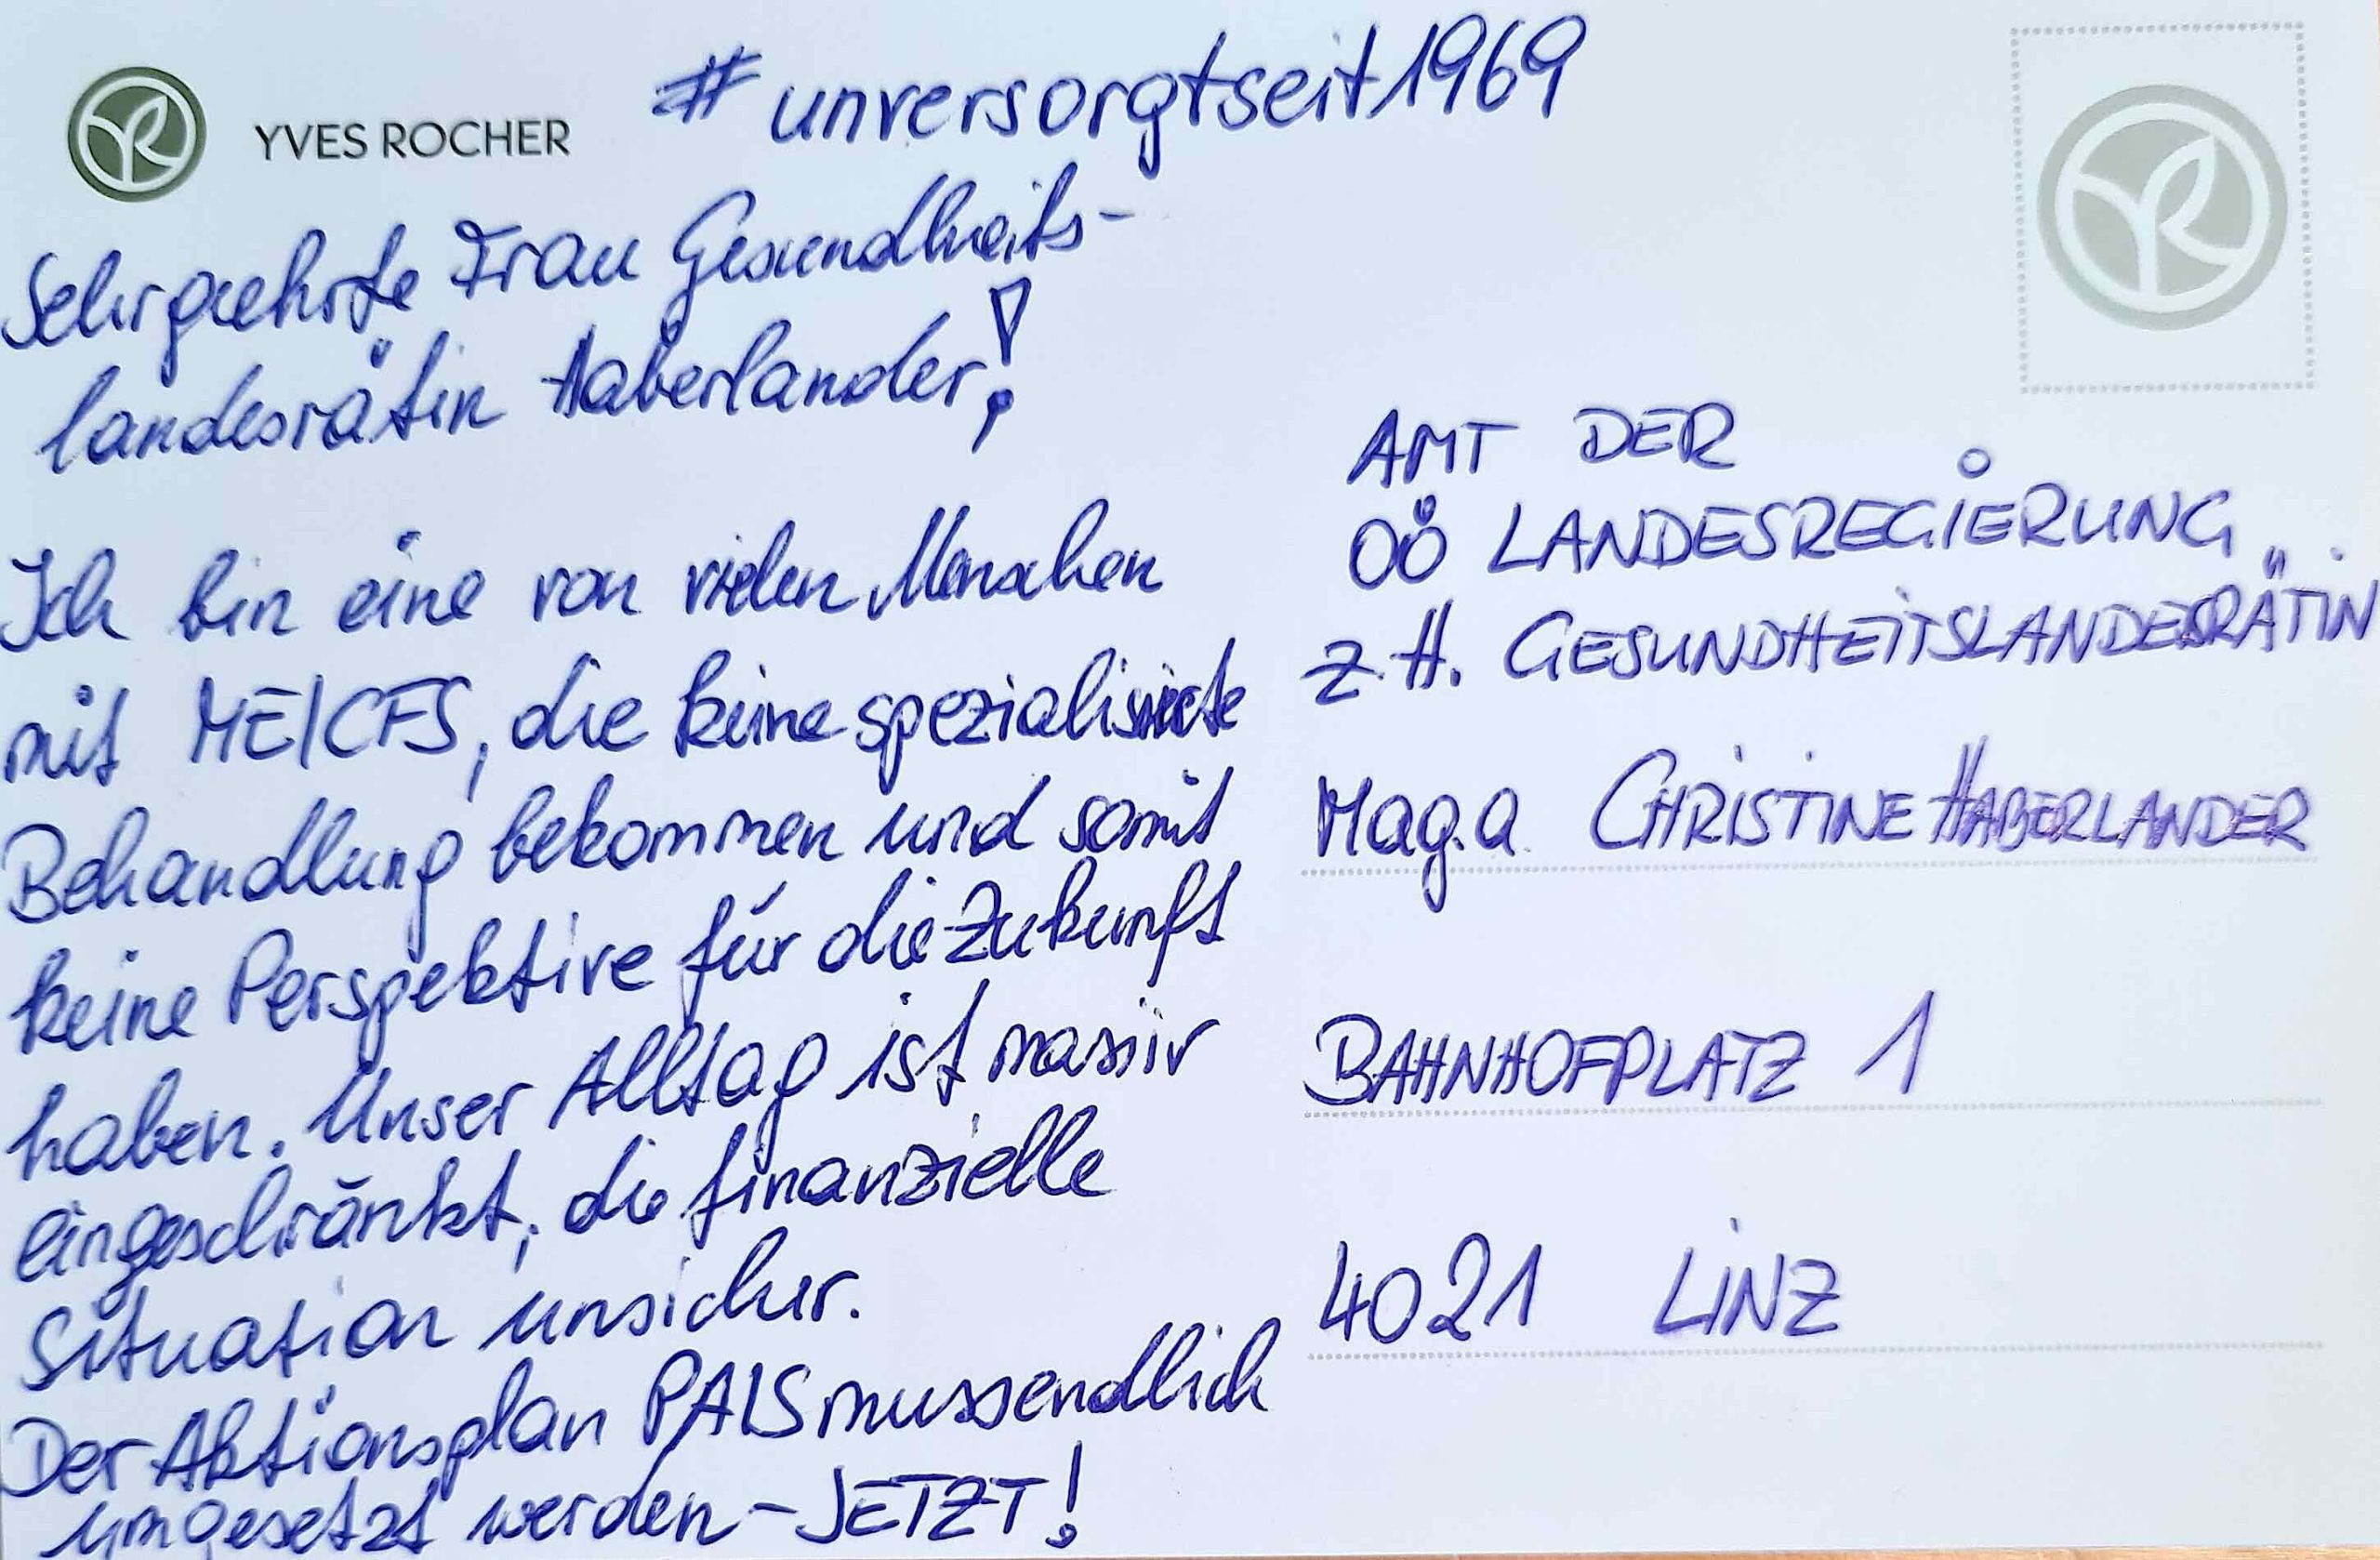 YVES ROCHER
#unversorgtseit1969
Sehr geehrte Frau Gesundheits-
landesrätin Haberlander!
Ich bin eine von vielen Menschen
mit ME/CFS, die keine spezialisierte
Behandlung bekommen und somit
keine Perspektive für die Zukunft
haben. Unser Alltag ist massiv
eingeschränkt, die finanzielle
Situation unsicher.
Der Aktionsplan PAIS muss endlich
umgesetzt werden - JETZT!
AMT DER
OÖ LANDESREGIERUNG
z.H. GESUNDHEITSLANDESRÄTIN
Mag.a CHRISTINE HABERLANDER
BAHNHOFPLATZ 1
4021 LINZ